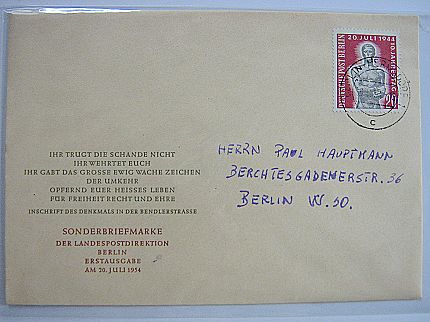 20. JULI 1944
10. JAHRESTAG
DEUTSCHE POST BERLIN
20
C
IHR TRUGT DIE SCHANDE NICHT
IHR WEHRTET EUCH
IHR GABT DAS GROSSE EWIG WACHE ZEICHEN
DER UMKEHR
OPFERND EUER HEISSES LEBEN
FÜR FREIHEIT RECHT UND EHRE
INSCHRIFT DES DENKMALS IN DER BENDLERSTRASSE
SONDERBRIEFMARKE
DER LANDESPOSTDIREKTION
BERLIN
ERSTAUSGABE
AM 20. JULI 1954
HERRN PAUL HAUPTMANN
BERCHTESGADENERSTR. 36
BERLIN W. 30.